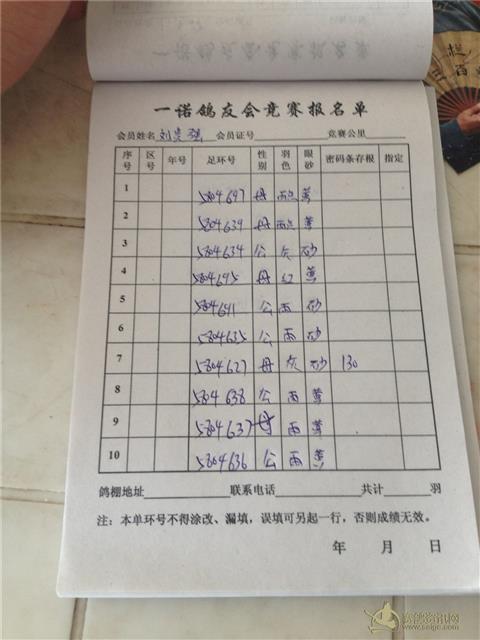 一诺鸽友会竞赛报名单
会员姓名 刘 会员证号 竞赛公里
序号 区号 年号 足环号 性别 羽色 眼砂 密码条存根 指定
1 5804697 母 雨点 黄
2 5804639 母 雨点 黄
3 5804634 公 灰 砂
4 5804695 母 红 黄
5 5804691 公 雨 砂
6 5804635 公 雨 砂
7 5804627 母 灰 砂 130
8 5804638 公 雨 黄
9 5804637 母 雨 黄
10 5804636 公 雨 黄
鸽棚地址 联系电话 共计 羽
注：本单环号不得涂改、漏填，误填可另起一行，否则成绩无效。
年 月 日
赛鸽资讯网
www.saige.com